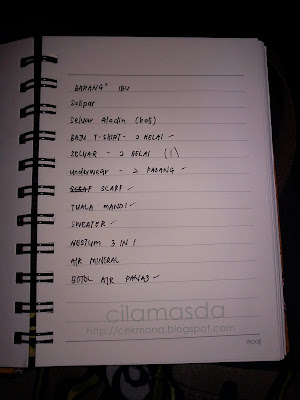 BARANG² IBU
Selipar
Seluar Aladin (beli)
BAJU T-SHIRT - 2 HELAI ✓
SELUAR - 2 HELAI (1)
underwear - 2 PASANG ✓
SCARF ✓
TUALA MANDI ✓
SWEATER ✓
NESTUM 3 IN 1
AIR MINERAL
BOTOL AIR PANAS ✓
cilamasda
http://cekmona.blogspot.com